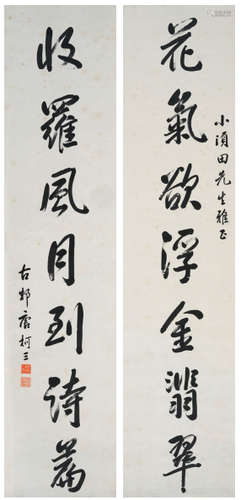 花氣欲浮金翡翠
小須田先生雅正
收羅風月到詩篇
古邾唐柯三